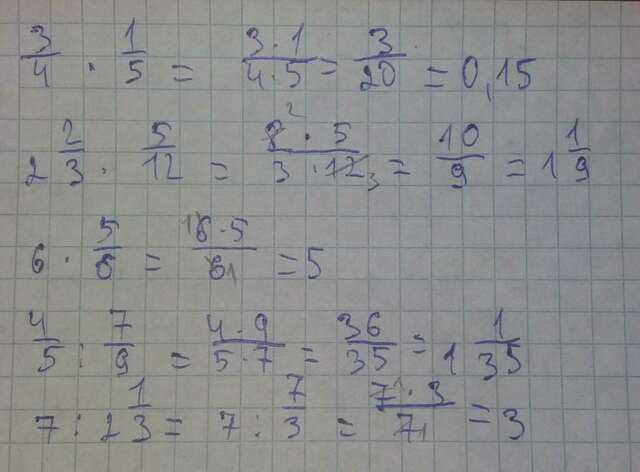 3/4 · 1/5 = (3 · 1)/(4 · 5) = 3/20 = 0,15
2 2/3 · 5/12 = (8 2 · 5)/(3 · 12 3) = 10/9 = 1 1/9
6 · 5/6 = (1 6 · 5)/(6 1) = 5
4/5 : 7/9 = (4 · 9)/(5 · 7) = 36/35 = 1 1/35
7 : 2 1/3 = 7 : 7/3 = (7 1 · 3)/(7 1) = 3